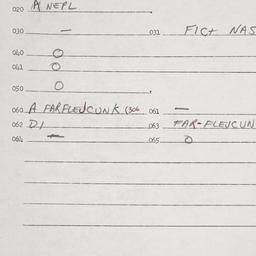 020 A NEPL
030 — 031 FICt NAS
040 O
041 O
050 O
060 A FARFLEJCUNK (306 061 —
062 D1 063 FAR-FLEJCUN
064 — 065 O